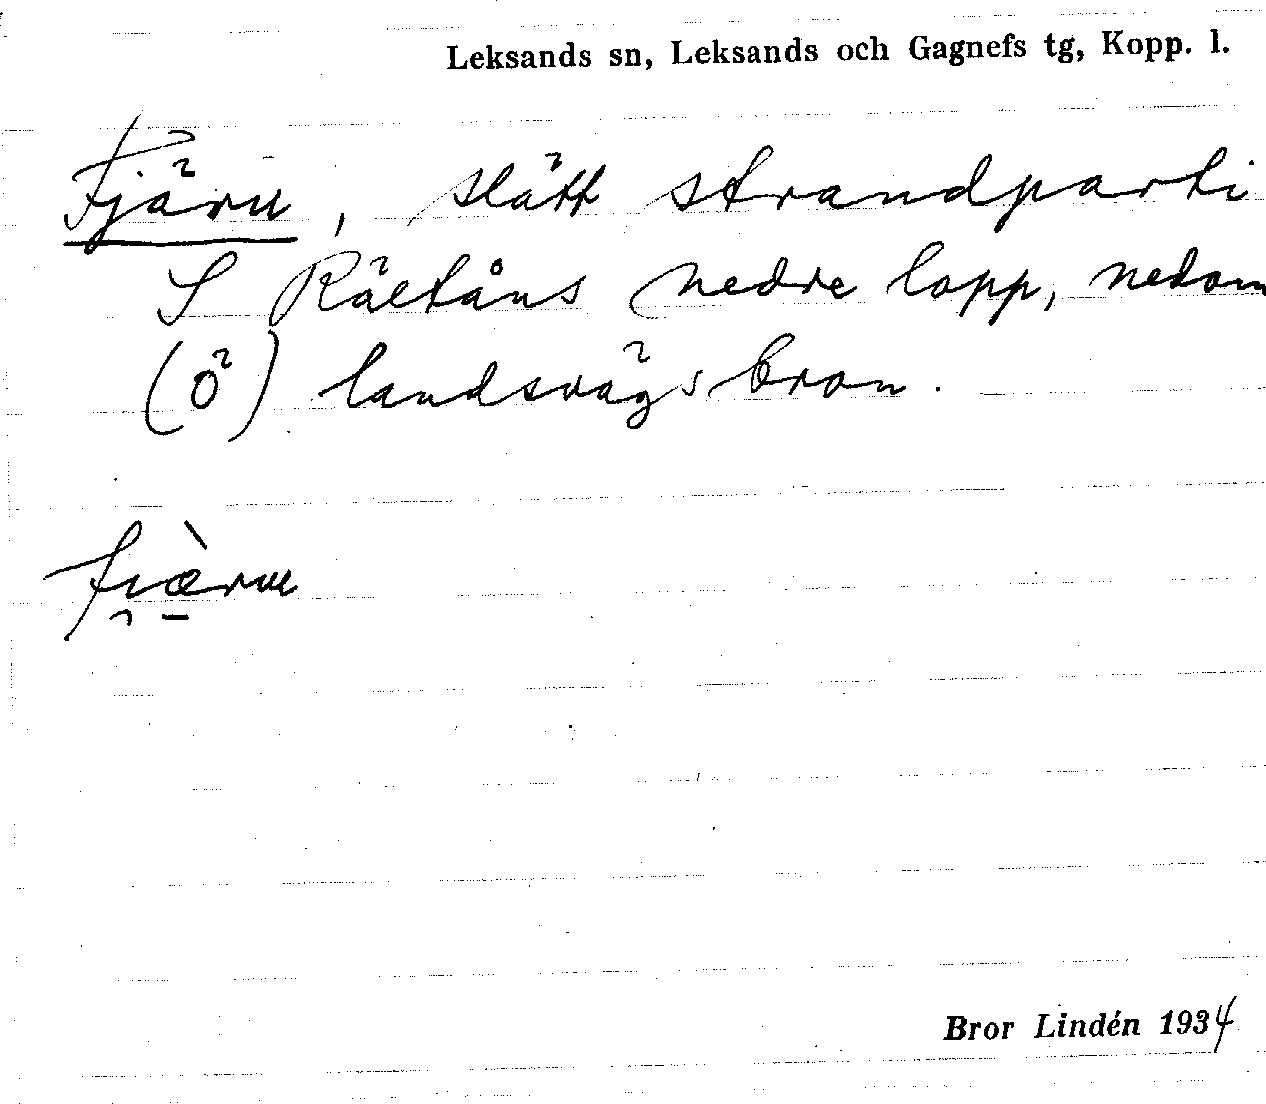 Leksands sn, Leksands och Gagnefs tg, Kopp. l.
Fjäru, slätt strandparti
S Rältåns nedre lopp, nedom
(Ö) landsvägsbron.
Bror Lindén 1934